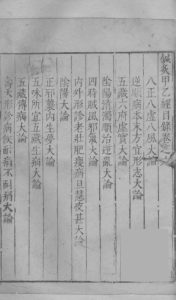 鍼灸甲乙經目錄卷之六
八正八虛八風大論
逆順病本末方宜形志大論
五藏六府虛實大論
陰陽清濁順治逆亂大論
四時賊風邪氣大論
內外形診老壯肥瘦病旦慧夜甚大論
陰陽大論
正邪襲內生夢大論
五味所宜五藏生病大論
五藏傳病大論
壽夭形診病候耐痛不耐痛大論